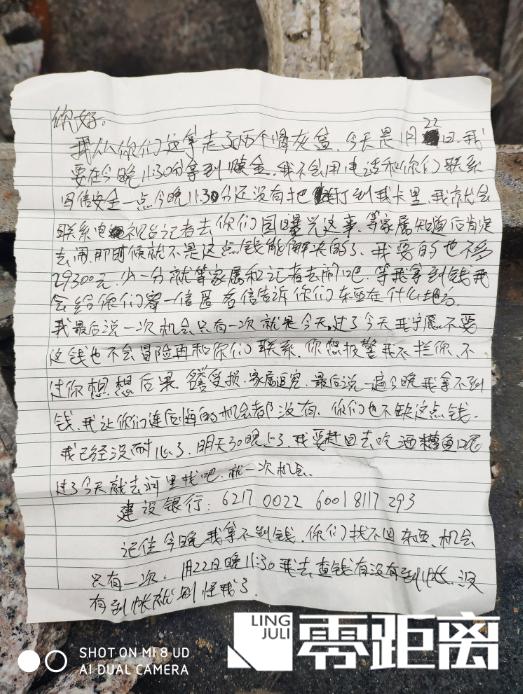 你好。
我从你们这拿走了两个骨灰盒。今天是1月22日,我
要在今晚11:30分拿到赎金。我不会用电话和你们联系
因为安全一点今晚11:30分还没有把钱打到我卡里,我就会
联系电视台记者去你们园曝光这事,等家属知道后肯定
去闹,那时候就不是这点钱能解决的了,我要的也不多
29300元,少一分就等家属和记者去闹吧,等我拿到钱我
会给你们寄一信里 告诉你们东西在什么地方
我最后说一次机会只有一次就是今天,过了今天我宁愿不要
这钱也不会冒险再和你们联系,你想报警我不拦你,不
过你想想后果 受损,家属追究,最后说一遍今晚我拿不到
钱,我让你们连后悔的机会都没有,你们也不缺这点钱,
我已经没耐心了,明天30晚上了,我要赶回去吃酒糟鱼呢
过了今天就去河里找吧,就一次机会
建设银行:6217 0022 6001 8117 293
记住今晚我拿不到钱,你们找不回东西,机会
只有一次,1月22日晚11:30我去查钱有没有到帐,没
有到帐就别怪我了
LING JULI 零距离
SHOT ON MI 8 UD
AI DUAL CAMERA